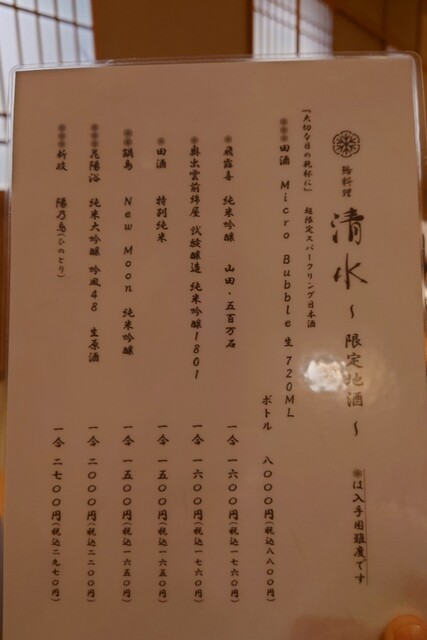 鮨料理 清水 ~ 限定地酒 ~
❀は入手困難度です
「大切な日の乾杯に」 超限定スパークリング日本酒
❀❀❀田酒 Micro Bubble 生 720ML
ボトル 八〇〇〇円(税込八八〇〇円)
❀飛露喜 純米吟醸 山田・五百万石 一合 一六〇〇円(税込一七六〇円)
❀奥出雲前綿屋 試験醸造 純米吟醸1801 一合 一六〇〇円(税込一七六〇円)
❀田酒 特別純米 一合 一五〇〇円(税込一六五〇円)
❀鍋島 New Moon 純米吟醸 一合 一五〇〇円(税込一六五〇円)
❀❀❀花陽浴 純米大吟醸 吟風48 生原酒 一合 二〇〇〇円(税込二二〇〇円)
❀❀❀新政 陽乃鳥(ひのとり) 一合 二七〇〇円(税込二九七〇円)